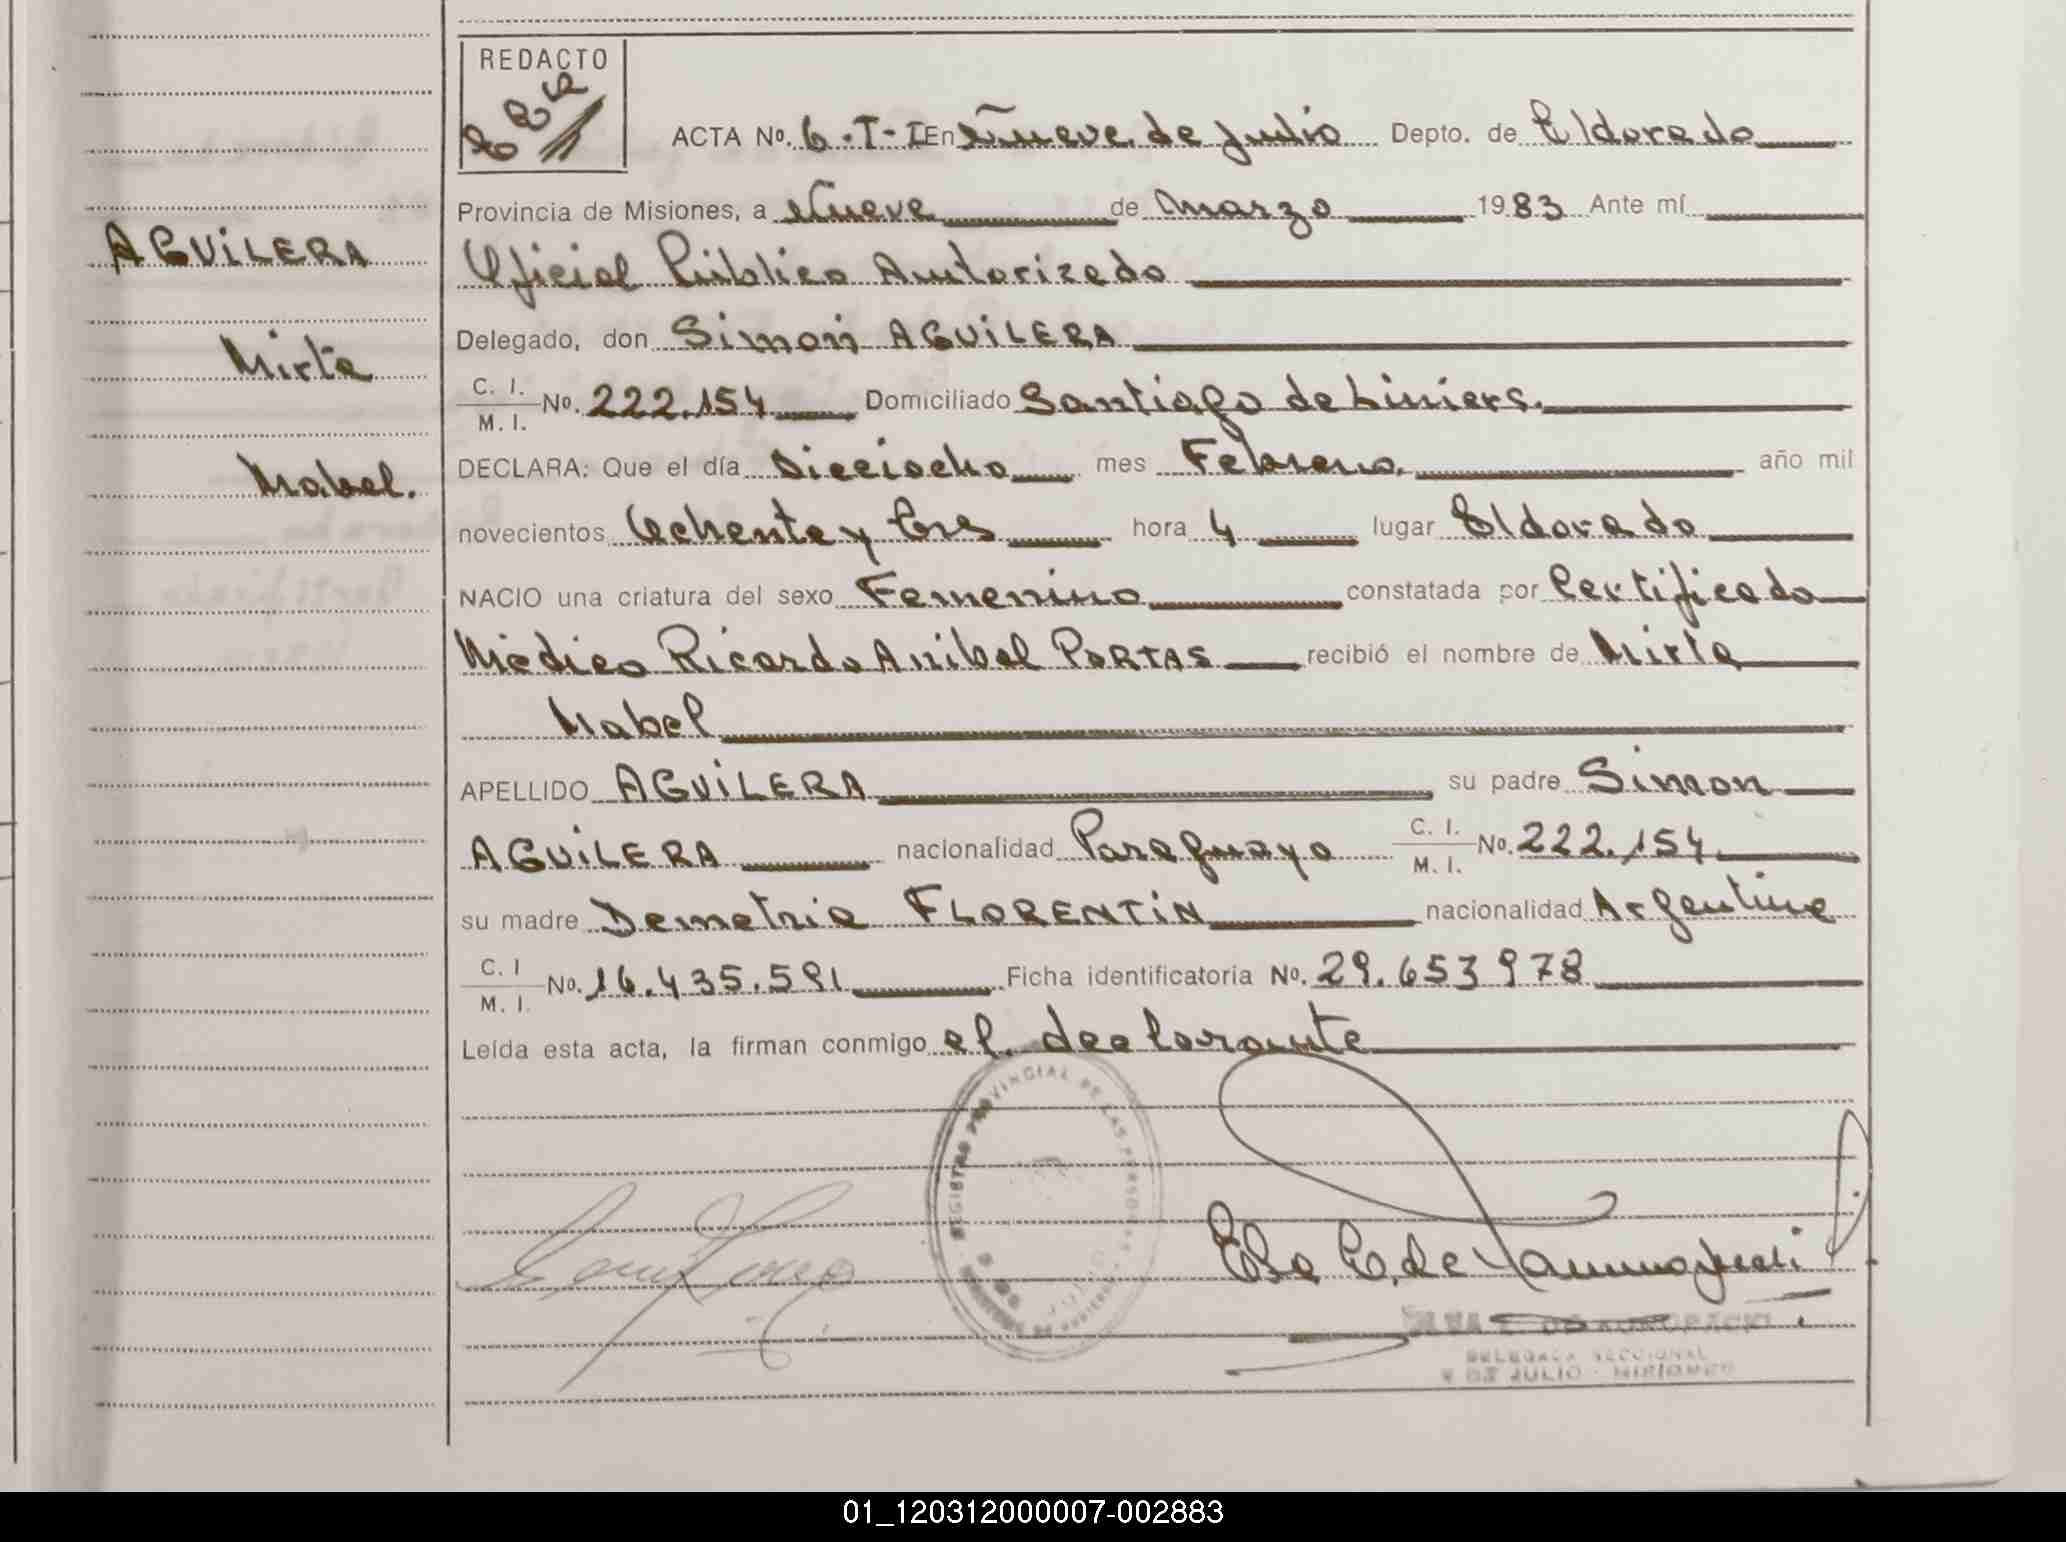 REDACTO
ACTA Nº. 6-T-I En Nueve de Julio Depto. de Eldorado
Provincia de Misiones, a Nueve de Marzo 1983 Ante mí
Oficial Público Autorizado
AGUILERA
Delegado, don Simón AGUILERA
Mirta
C. I.
M. I. Nº. 222.154 Domiciliado Santiago de Liniers.
Mabel.
DECLARA: Que el día Dieciocho mes Febrero. año mil
novecientos Ochenta y tres hora 4 lugar Eldorado
NACIO una criatura del sexo Femenino constatada por Certificado
Médico Ricardo Anibal PORTAS recibió el nombre de Mirta
Mabel
APELLIDO AGUILERA su padre Simon
AGUILERA nacionalidad Paraguayo C. I.
M. I. Nº. 222.154
su madre Demetria FLORENTÍN nacionalidad Argentina
C. I
M. I. Nº. 16.435.581 Ficha identificatoria Nº. 29.653978
Leída esta acta, la firman conmigo el declarante
REGISTRO PROVINCIAL DE LAS PERSONAS
DELEGADA SECCIONAL
9 DE JULIO - MISIONES
01_120312000007-002883